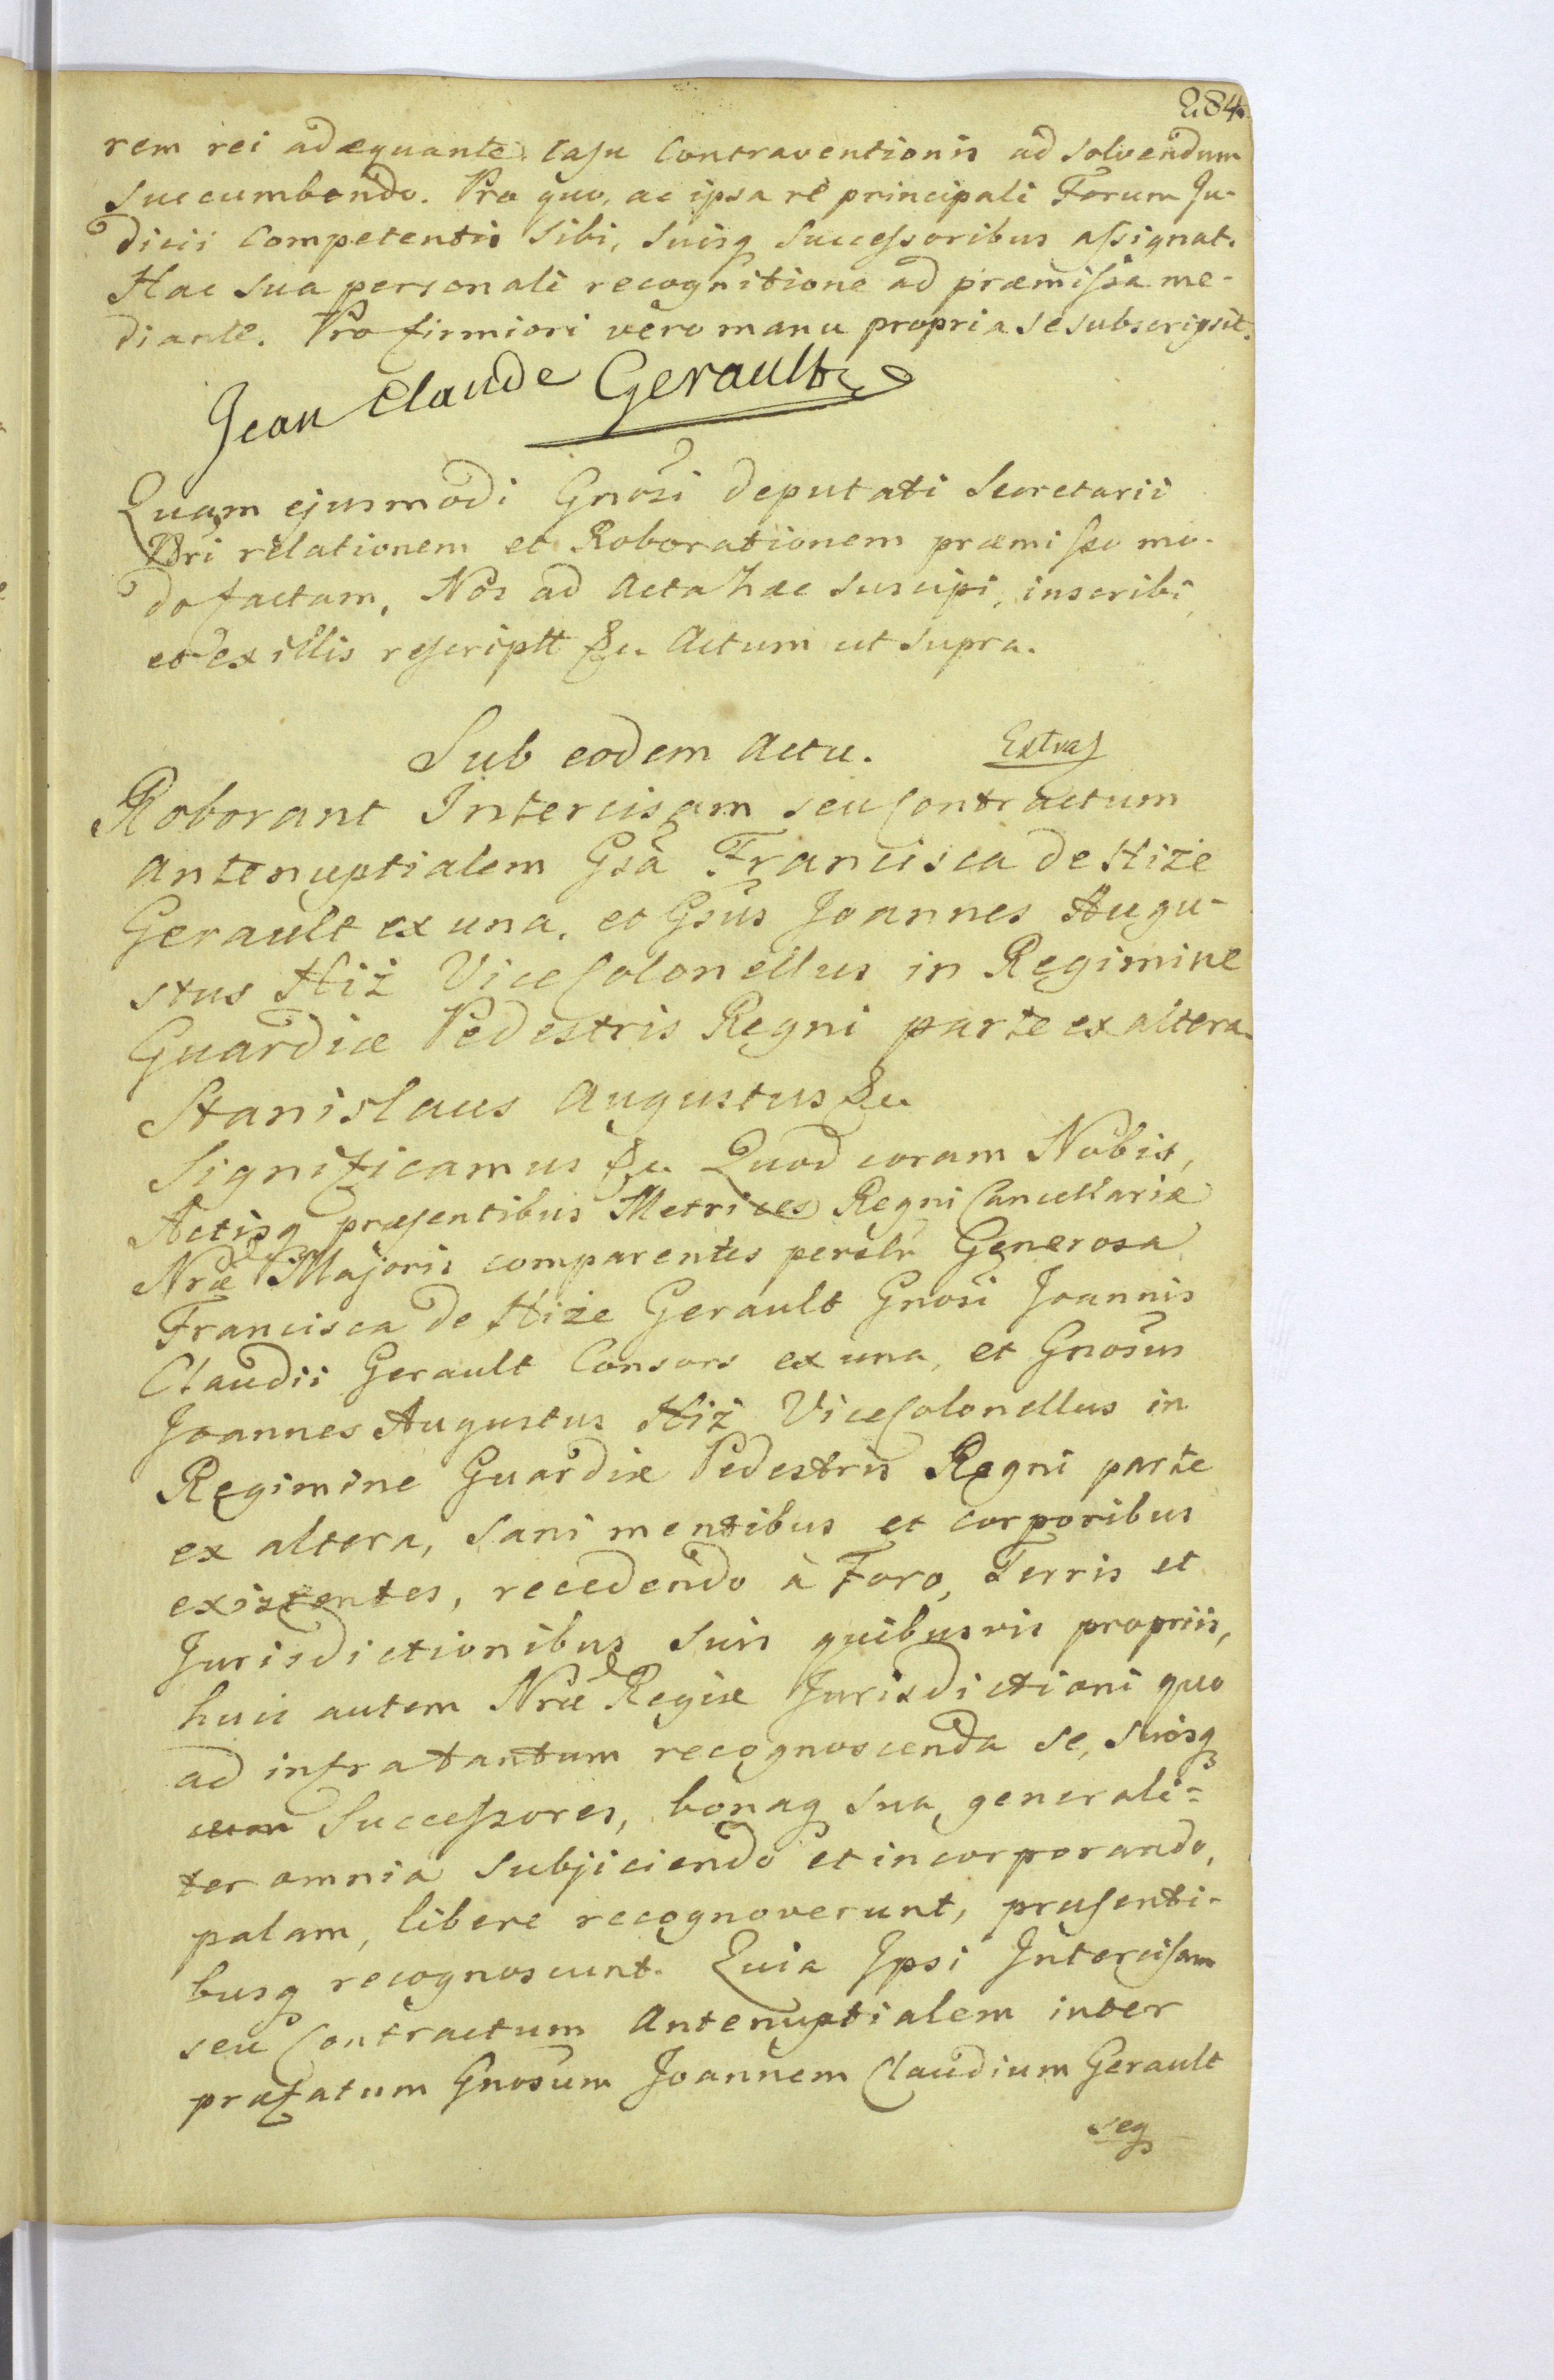 284.
rem rei adæquante, casu Contraventionis ad solvendum
succumbendo. Pro quo, ac ipsa re principali Forum Ju-
dicii Competentis Sibi, Suisq Successoribus assignat.
Hac sua personali recognitione ad præmissa me-
diante. Pro firmiori vero manu propria se subscripsit.
Jean Claude Gerault
Quam ejusmodi Gnosi deputati Secretarii
Nri relationem et Roborationem præmisso mo-
do factam, Nos ad Acta hæc suscipi, inscribi,
et ex illis rescriptt &c Actum ut supra.
Sub eodem Actu. Extra
Roborant Intercisam seu Contractum
Antenuptialem Gsa Francisca de Hiże
Gerault ex una, et Gsus Joannes Augu-
stus Hiż ViceColonellus in Regimine
Guardiæ Pedestris Regni parte ex altera.
Stanislaus Augustus &c
Significamus &c Quod coram Nobis,
Actisq præsentibus Metrices Regni Cancellariæ
Nræ Majoris comparentes persltr Generosa
Francisca de Hiże Gerault Gnosi Joannis
Claudii Gerault Consors ex una, et Gnosus
Joannes Augustus Hiż ViceColonellus in
Regimine Guardiæ Pedestris Regni parte
ex altera, sani mentibus et corporibus
existentes, recedendo à Foro, Terris et
Jurisdictionibus suis quibusvis propriis,
huic autem Nræ Regiæ Jurisdictioni quo
ad infra tantum recognoscenda se, suosq
Successores, bonaq sua generali-
ter omnia subjiciendo et incorporando,
palam, libere recognoverunt, præsenti-
busq recognoscunt. Quia Ipsi Intercisam
seu Contractum Antenuptialem inter
præfatum Gnosum Joannem Claudium Gerault
seq